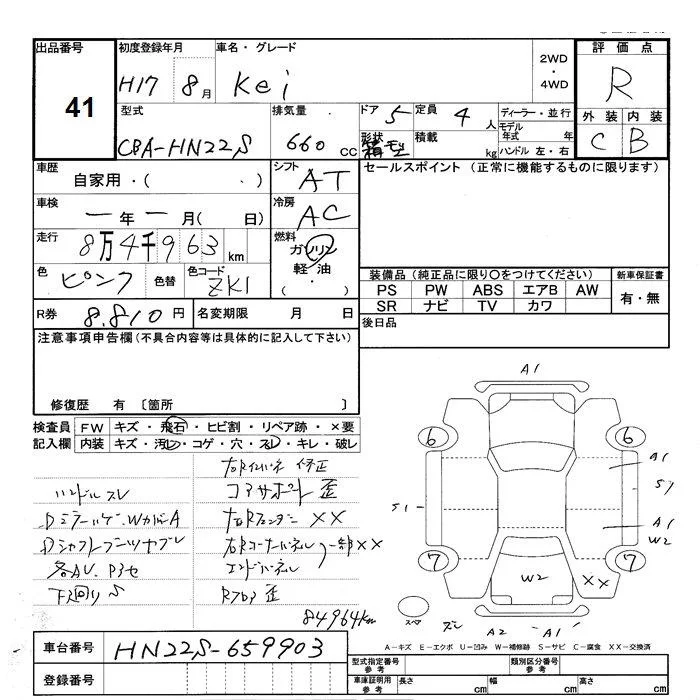 出品番号 初度登録年月 車名・グレード 評価点
41 H17 8月 Kei 2WD・4WD R
型式 排気量 ドア 5 定員 4人 ディーラー・並行 外装 内装
CBA-HN22S 660 cc 形状 箱型 積載 kg モデル年式 年 ハンドル 左・右 C B
車歴 自家用・( ) シフト AT セールスポイント (正常に機能するものに限ります)
車検 一年一月( 日) 冷房 AC
走行 8万4千963km 燃料 ガソリン 軽油 ( ・ )
色 ピンク 色替 色コード ZK1 装備品(純正品に限り○をつけてください) 新車保証書
PS PW ABS エアB AW 有・無
SR ナビ TV カワ
R券 8.810円 名変期限 月 日 後日品
注意事項申告欄(不具合内容等は具体的に記入して下さい)
修復歴 有 〔箇所 〕
検査員 FW キズ・飛石・ヒビ割・リペア跡・×要
記入欄 内装 キズ・汚レ・コゲ・穴・スレ・キレ・破レ
修正
ハンドルスレ コアサポート歪
Dミラーハゲ.WカバーA 右Rフェンダー ××
Dシャフトブーツヤブレ 右Rコーナーパネル 一部××
各AU.Pヨセ エンドパネル
下回りS Rフロア歪
84964km
A1
6 6
A1
S1 S7
A1
W2
7 7
W2 ××
スペア ズレ A2 A1
A-キズ E-エクボ U-凹み W-補修跡 S-サビ C-腐食 XX-交換済
車台番号 HN22S-659903
登録番号
型式指定番号 参考 類別区分番号 参考
車庫証明用 参考 長さ cm 幅 cm 高さ cm